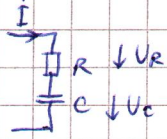 I
R
U_R
C
U_C